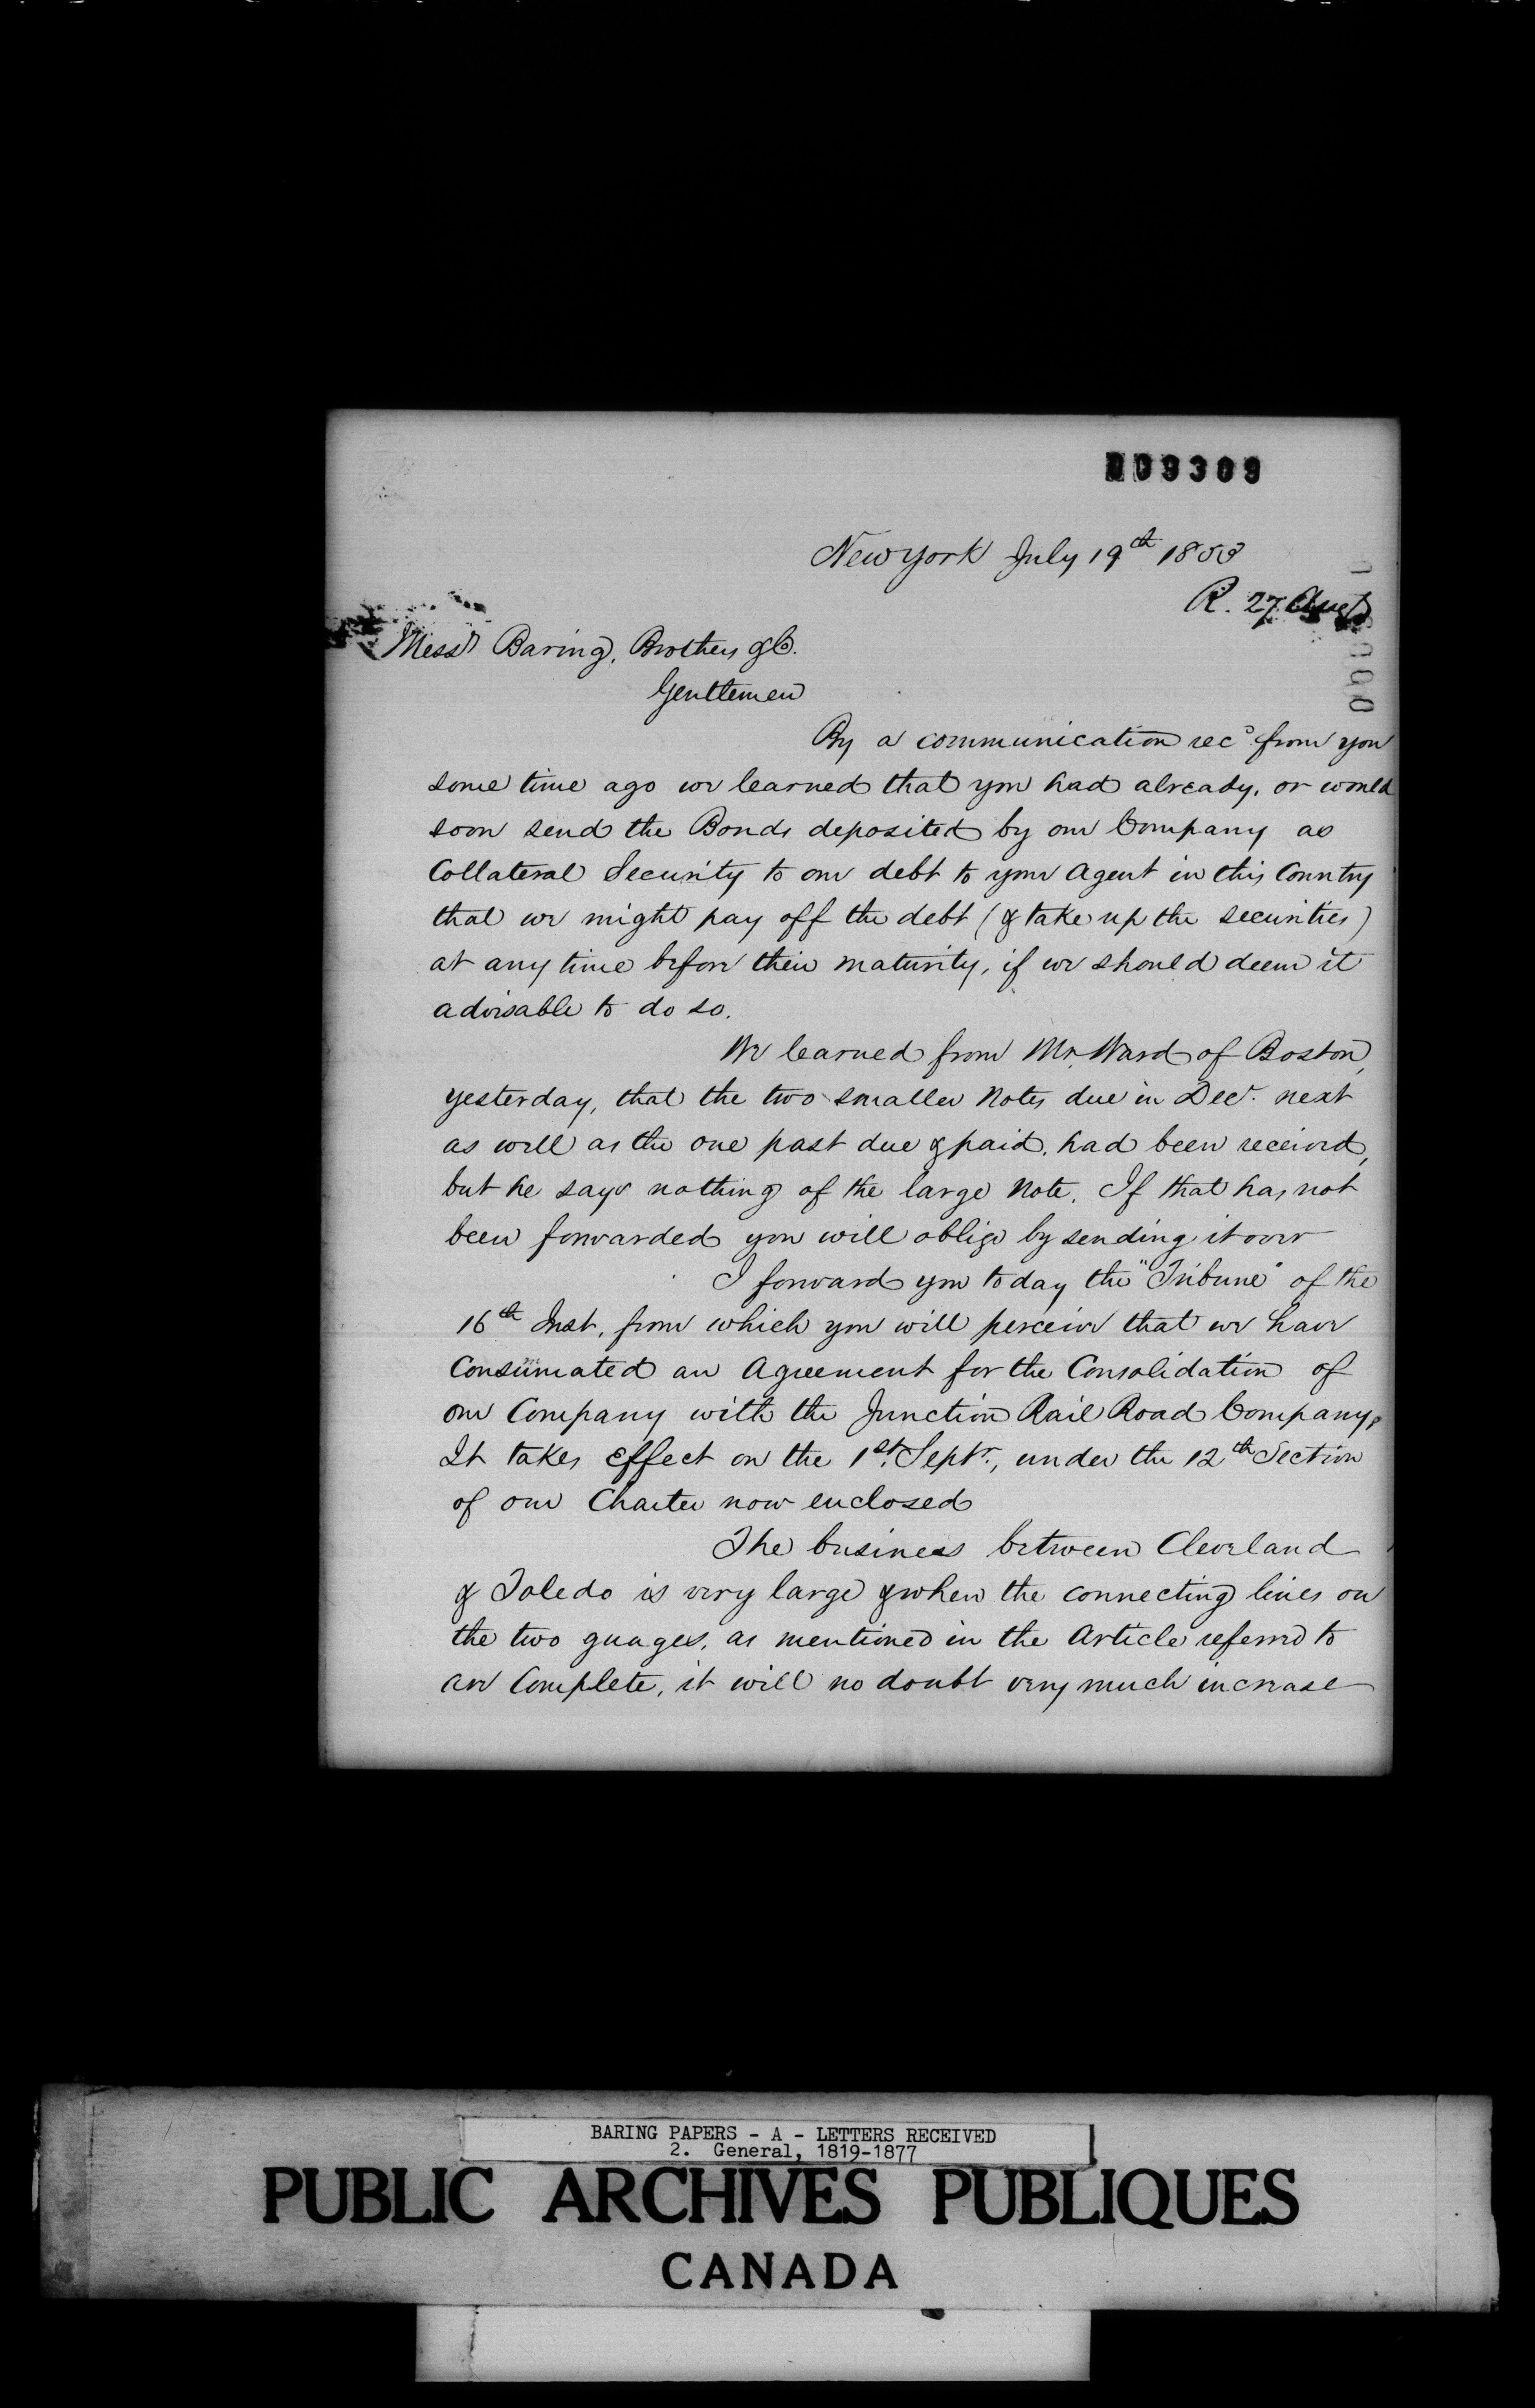 009309
New York July 19th 1853
R. 27 Augt
Messrs Baring, Brothers & Co.
Gentlemen
By a communication recd from you
some time ago we learned that you had already, or would
soon send the Bonds deposited by our Company as
Collateral Security to our debt to your Agent in this Country
that we might pay off the debt (& take up the securities)
at any time before their maturity, if we should deem it
advisable to do so.
We learned from Mr. Ward of Boston,
yesterday, that the two smaller Notes due in Decr. next
as well as the one past due & paid, had been received,
but he says nothing of the large Note. If that has not
been forwarded you will oblige by sending it over
I forward you today the "Tribune" of the
16th Inst, from which you will perceive that we have
Consummated an Agreement for the Consolidation of
our Company with the Junction Rail Road Company,
It takes Effect on the 1st. Septr., under the 12th Section
of our Charter now enclosed
The business between Cleveland
& Toledo is very large & when the connecting lines on
the two guages, as mentioned in the Article referred to
are Complete, it will no doubt very much increase
BARING PAPERS - A - LETTERS RECEIVED
2. General, 1819-1877
PUBLIC ARCHIVES PUBLIQUES
CANADA